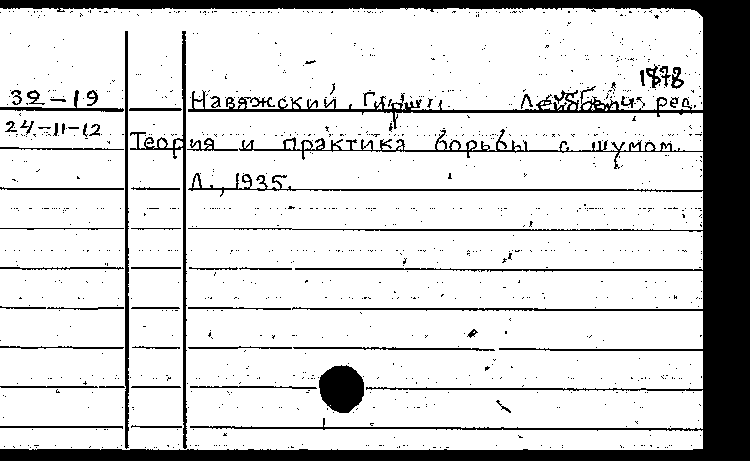 1878
39-19 Навяжский, Гирши ред.
24-11-12 Теория и практика борьбы с шумом.
Л., 1935.